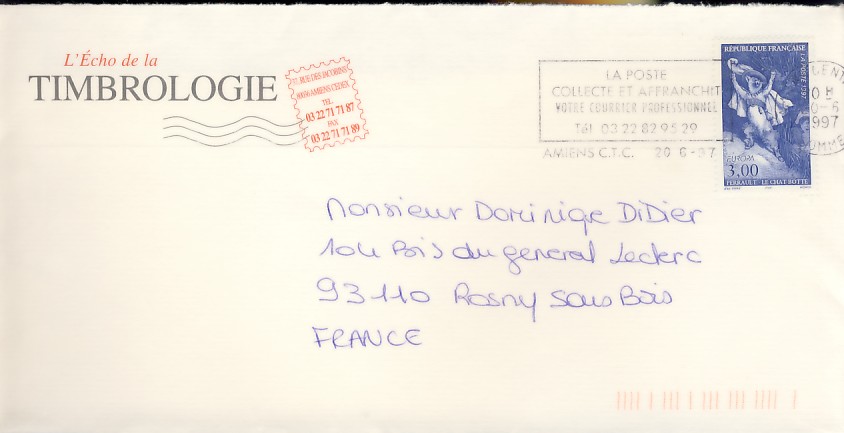 L'Écho de la
TIMBROLOGIE
37, RUE DES JACOBINS
80036 AMIENS CEDEX
TEL.
03 22 71 71 87
FAX
03 22 71 71 89
LA POSTE
COLLECTE ET AFFRANCHIT
VOTRE COURRIER PROFESSIONNEL
Tél 03 22 82 95 29
AMIENS C.T.C. 20 6-97
RÉPUBLIQUE FRANÇAISE
LA POSTE 1997
EUROPA
3,00
PERRAULT - LE CHAT BOTTÉ
1997
Monsieur Dominique DiDier
104 Bis du general Leclerc
93110 Rosny sous Bois
FRANCE